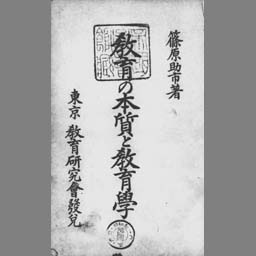 篠原助市著
教育の本質と教育學
東京 教育研究會發兌